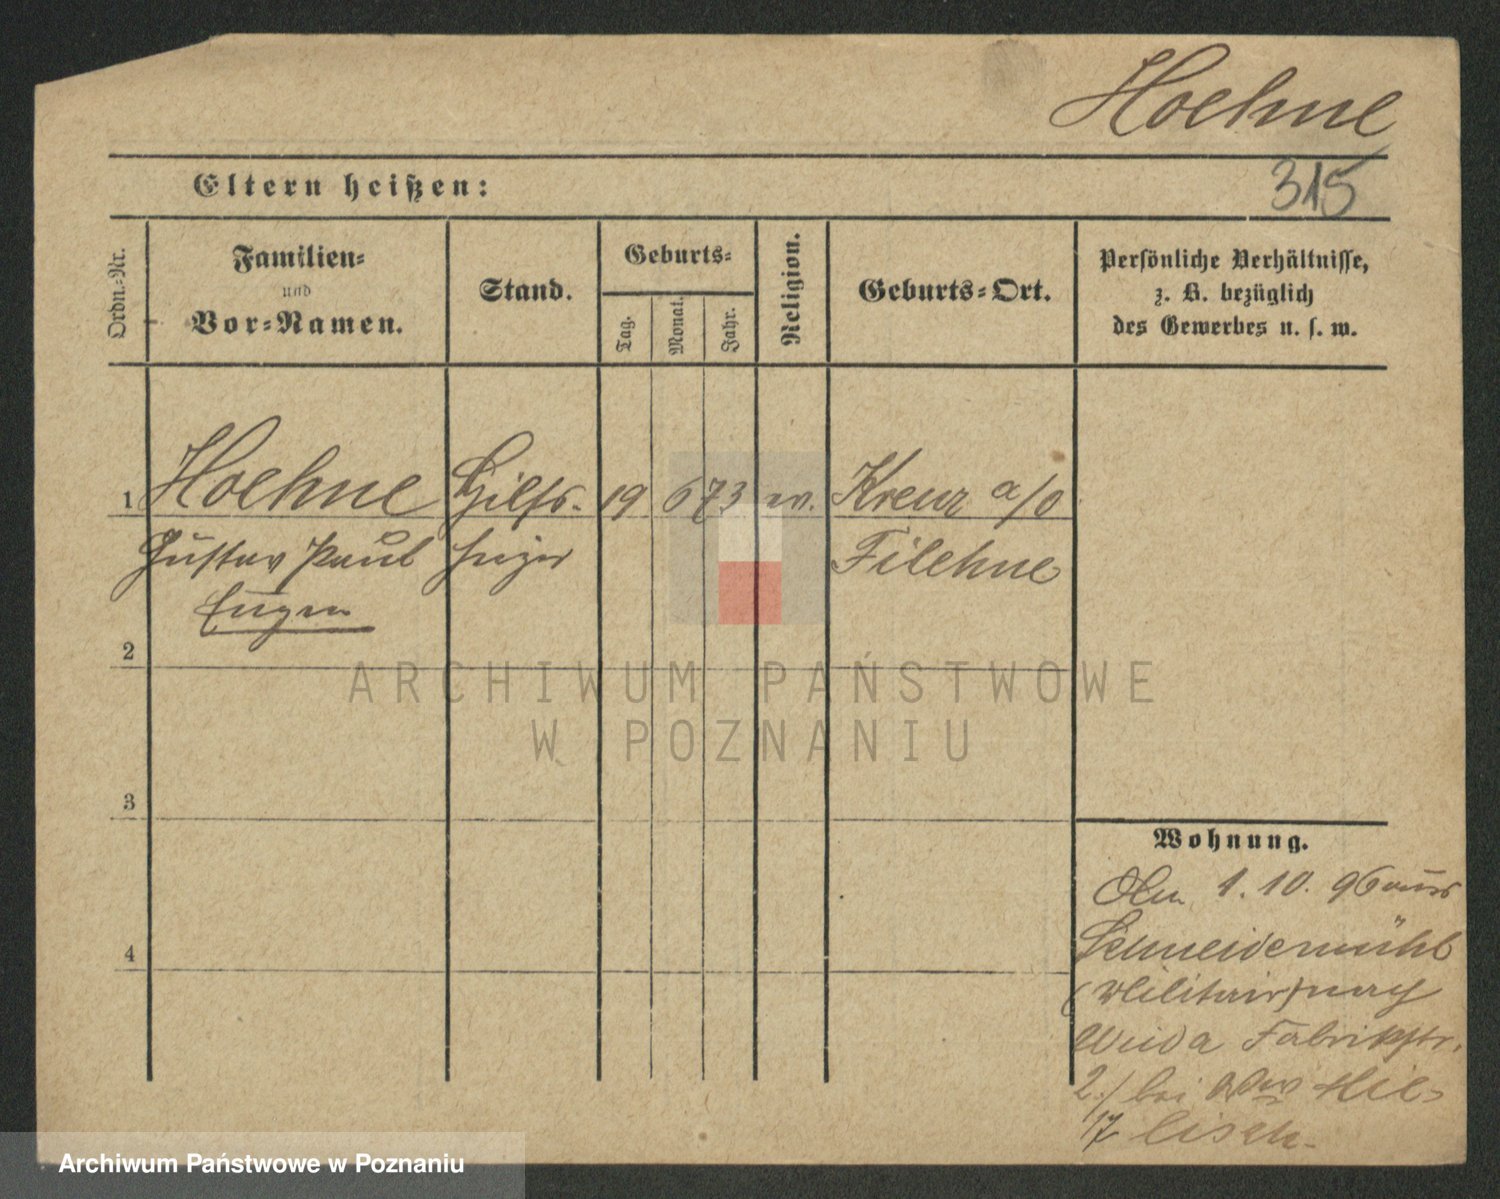 Hoehne
315
Eltern heißen:
Ordn.-Nr.
Familien-
und
Vor-Namen.
Stand.
Geburts-
Tag.
Monat.
Jahr.
Religion.
Geburts-Ort.
Persönliche Verhältnisse,
z. B. bezüglich
des Gewerbes u. s. w.
1 Hoehne Hilfs- 19 6 73 ev. Kreuz a/O
Gustav Paul heizer Filehne
Eugen
2
3
4
ARCHIWUM PAŃSTWOWE
W POZNANIU
Wohnung.
1. 10. 96 aus
Schneidemühl
(Militair) nach
Fabrikstr.
2./ bei Wwe Hie-
17
Archiwum Państwowe w Poznaniu